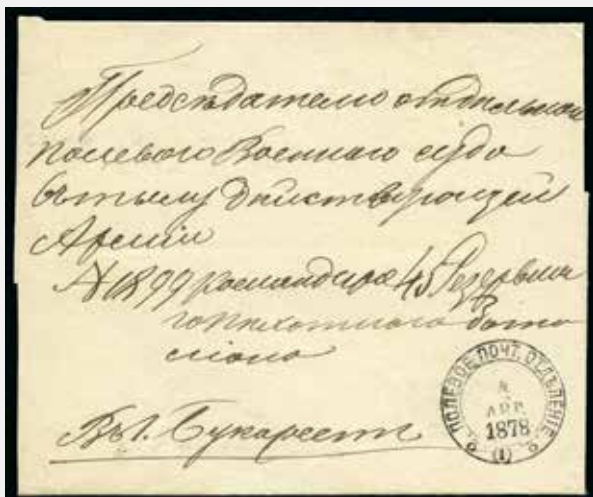 Председателю отдельнаго
полеваго Военнаго суда
въ тылу действующей
Армии
№ 1899 командира 45 Резервна
го пехотнаго бата
лiона
Въ г. Букарестъ
ПОЛЕВОЕ ПОЧТ. ОТДѢЛЕНIЕ
4
АПР.
1878
(1)